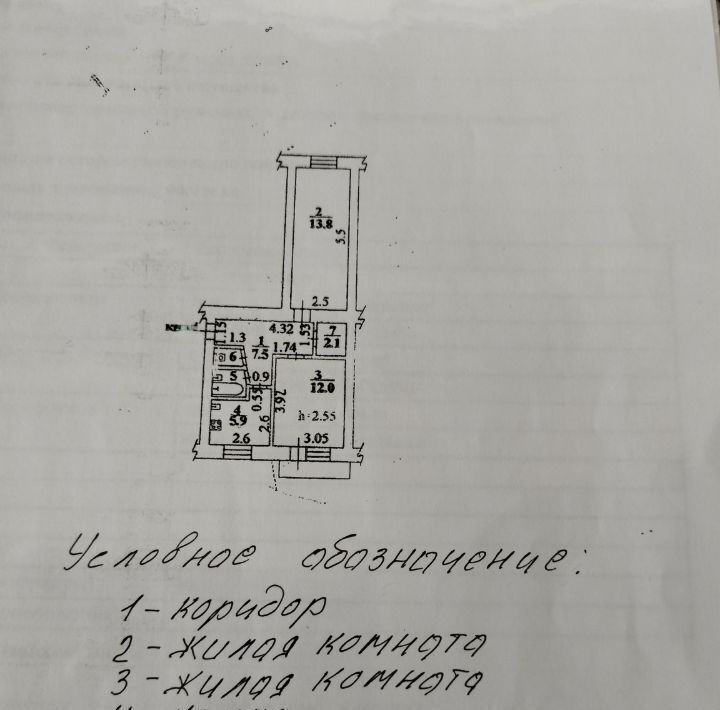 2
13.8
5.5
2.5
4.32
1.15
1.3
1
7.5
1.74
1.53
7
2.1
6
5
0.9
3
12.0
0.55
3.92
4
5.9
2.6
h=2.55
2.6
3.05
Условное обозначение:
1 - коридор
2 - жилая комната
3 - жилая комната